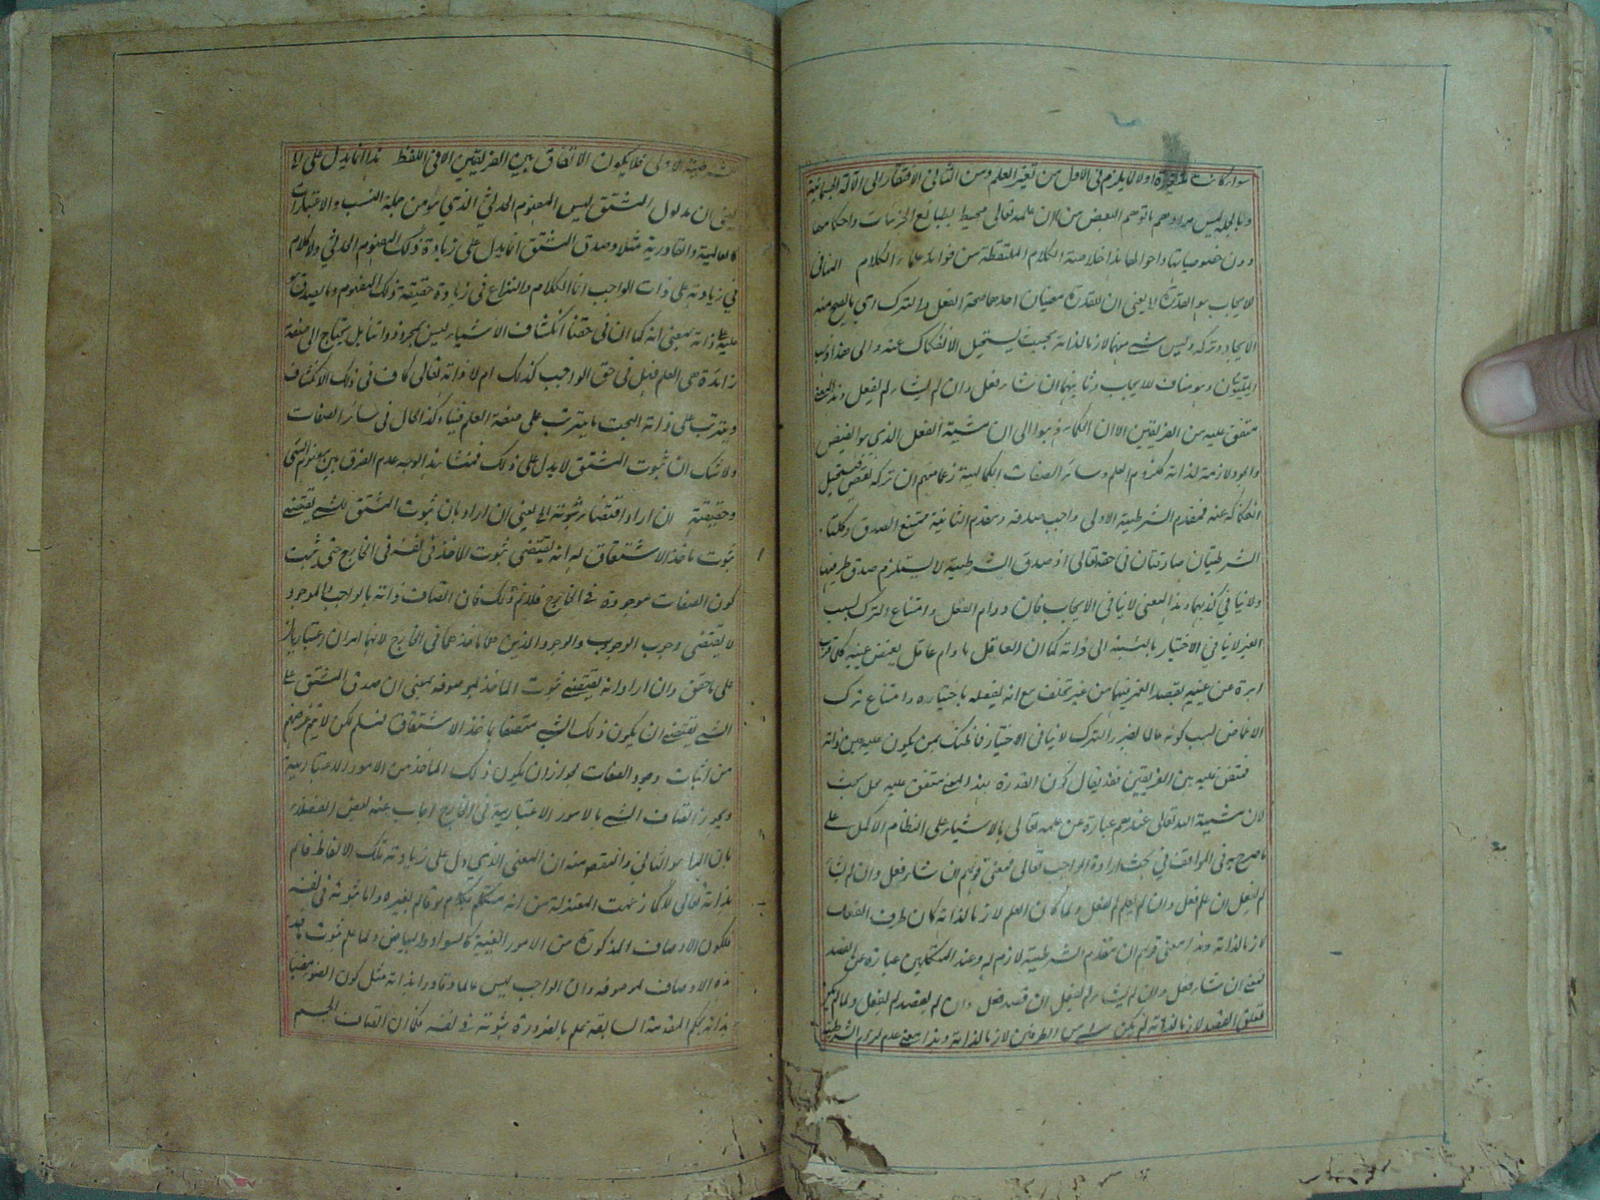 سواء كانت متغيرة اولا لا يلزم فى الاول من تغير العلم ومن الثانى الافتقار الى الآلة الجسمانية
وبالجملة ليس مرادهم ما توهم البعض من ان علمه تعالى محيط بطبائع الجزئيات واحكامها
دون خصوصياتها واحوالها هذا خلاصة الكلام الملتقطة من فوائد علماء الكلام المنافى
للايجاب هو القدرة يعنى ان للقدرة معنيان احدهما صحة الفعل والترك اى يصح منه
الايجاد وتركه وليس شئ منهما لازما لذاته بحيث يستحيل الانفكاك عنه والى هذا ذهب
المليّون وهو مناف للايجاب وثانيهما ان شاء فعل وان لم يشأ لم يفعل وهذا المعنى
متفق عليه من الفريقين الا ان الحكماء ذهبوا الى ان مشية الفعل الذى هو الفيض
والجود لازمة لذاته كلزوم العلم وسائر الصفات الكمالية زعما منهم ان تركه نقص فيستحيل
انفكاكه عنه فمقدم الشرطية الاولى واجب صدقه ومقدم الثانية ممتنع الصدق وكلتا
الشرطيتان صادقتان فى حقه تعالى اذ صدق الشرطية لا يستلزم صدق طرفيها
ولا ينافى كذبهما وهذا المعنى لا ينافى الايجاب فان دوام الفعل وامتناع الترك بسبب
الغير لا ينافى الاختيار بالنسبة الى ذاته كما ان العاقل ما دام عاقل يغمض عينيه كلما قرب
ابرة من عينيه بقصد الغمز فيها من غير تخلف مع انه يفعله باختياره وامتناع ترك
الاغماض بسبب كونه عالما بضرر الترك لا ينافى الاختيار فما ظنك بمن يكون علمه عين ذاته
متفق عليه بين الفريقين فقد يقال كون القدرة بهذا المعنى متفق عليه محل بحث
لان مشية الله تعالى عندهم عبارة عن علمه تعالى بالاشياء على النظام الاكمل على
ما صرح به فى المواقف فى بحث ارادة الواجب تعالى فمعنى قولهم ان شاء فعل وان لم يشأ
لم يفعل ان علم فعل وان لم يعلم لم يفعل ولما كان العلم لازما لذاته كان طرف الفعل
لازما لذاته وهذا معنى قولهم ان مقدم الشرطية لازم له وعند المتكلمين عبارة عن القصد
فمعنى ان شاء فعل وان لم يشأ لم يفعل ان قصد فعل وان لم يقصد لم يفعل ولما لم يكن
تعلق القصد لازما لذاته لم يكن شئ من الطرفين لازما لذاته وهذا معنى عدم لزوم الشرطية
الشرطية الاولى فلا يكون الاتفاق بين الفريقين الا فى اللفظ هذا انما يدل على الخ
يعنى ان مدلول المشتق ليس المفهوم الحدثى الذى هو من جملة النسب والاعتبارات
كالعالمية والقادرية مثلا وصدق المشتق انما يدل على زيادة ذلك المفهوم الحدثى ولا كلام
فى زيادته على ذات الواجب انما الكلام والنزاع فى زيادة حقيقة ذلك المفهوم وما يصدق هو
عليه على ذاته بمعنى انه كما ان فى حقنا انكشاف الاشياء ليس بمجرد ذواتنا بل يحتاج الى صفة
زائدة هى العلم فهل فى حق الواجب كذلك ام لا ذاته تعالى كاف فى ذلك الانكشاف
ويترتب على ذاته البحت ما يترتب على صفة العلم فينا وكذا الحال فى سائر الصفات
ولا شك ان ثبوت المشتق لا يدل على ذلك فمنشأ هذا الوجه عدم الفرق بين مفهوم الشئ
وحقيقته ان اراد اقتضاء ثبوته الخ يعنى ان اراد بان ثبوت المشتق للشئ يقتضى
ثبوت ماخذ الاشتقاق له انه يقتضى ثبوت الماخذ فى نفسه فى الخارج حتى يثبت
كون الصفات موجودة فى الخارج فلا يتم ذلك فان اتصاف ذاته بالواجب والموجود
لا يقتضى وجوب الوجوب والوجود الذين هما ماخذهما فى الخارج لانهما امران اعتباريان
على ما حقق وان اراد انه يقتضى ثبوت الماخذ لموصوفه بمعنى ان صدق المشتق على
الشئ يقتضى ان يكون ذلك الشئ متصفا بماخذ الاشتقاق فمسلم لكن لا يتم غرضهم
من اثبات وجود الصفات لجواز ان يكون ذلك الماخذ من الامور الاعتبارية
ويجوز اتصاف الشئ بالامور الاعتبارية فى الخارج اجاب عنه بعض الفضلاء
بان المراد هو الثانى والمقصود منه ان المعنى الذى دل على زيادته تلك الالفاظ قائم
بذاته تعالى لا كما زعمت المعتزلة من انه متكلم بكلام هو قائم بغيره واما ثبوته فى نفسه
فلكون الاوصاف المذكورة من الامور العينية كالسواد والبياض ولما علم ثبوت
هذه الاوصاف لموصوفه وان الواجب ليس عالما وقادرا لذاته مثل كون الضوء مضيئا
بذاته بحكم المقدمة السابقة علم بالضرورة ثبوته فى نفسه فكما ان اتصاف الجسم